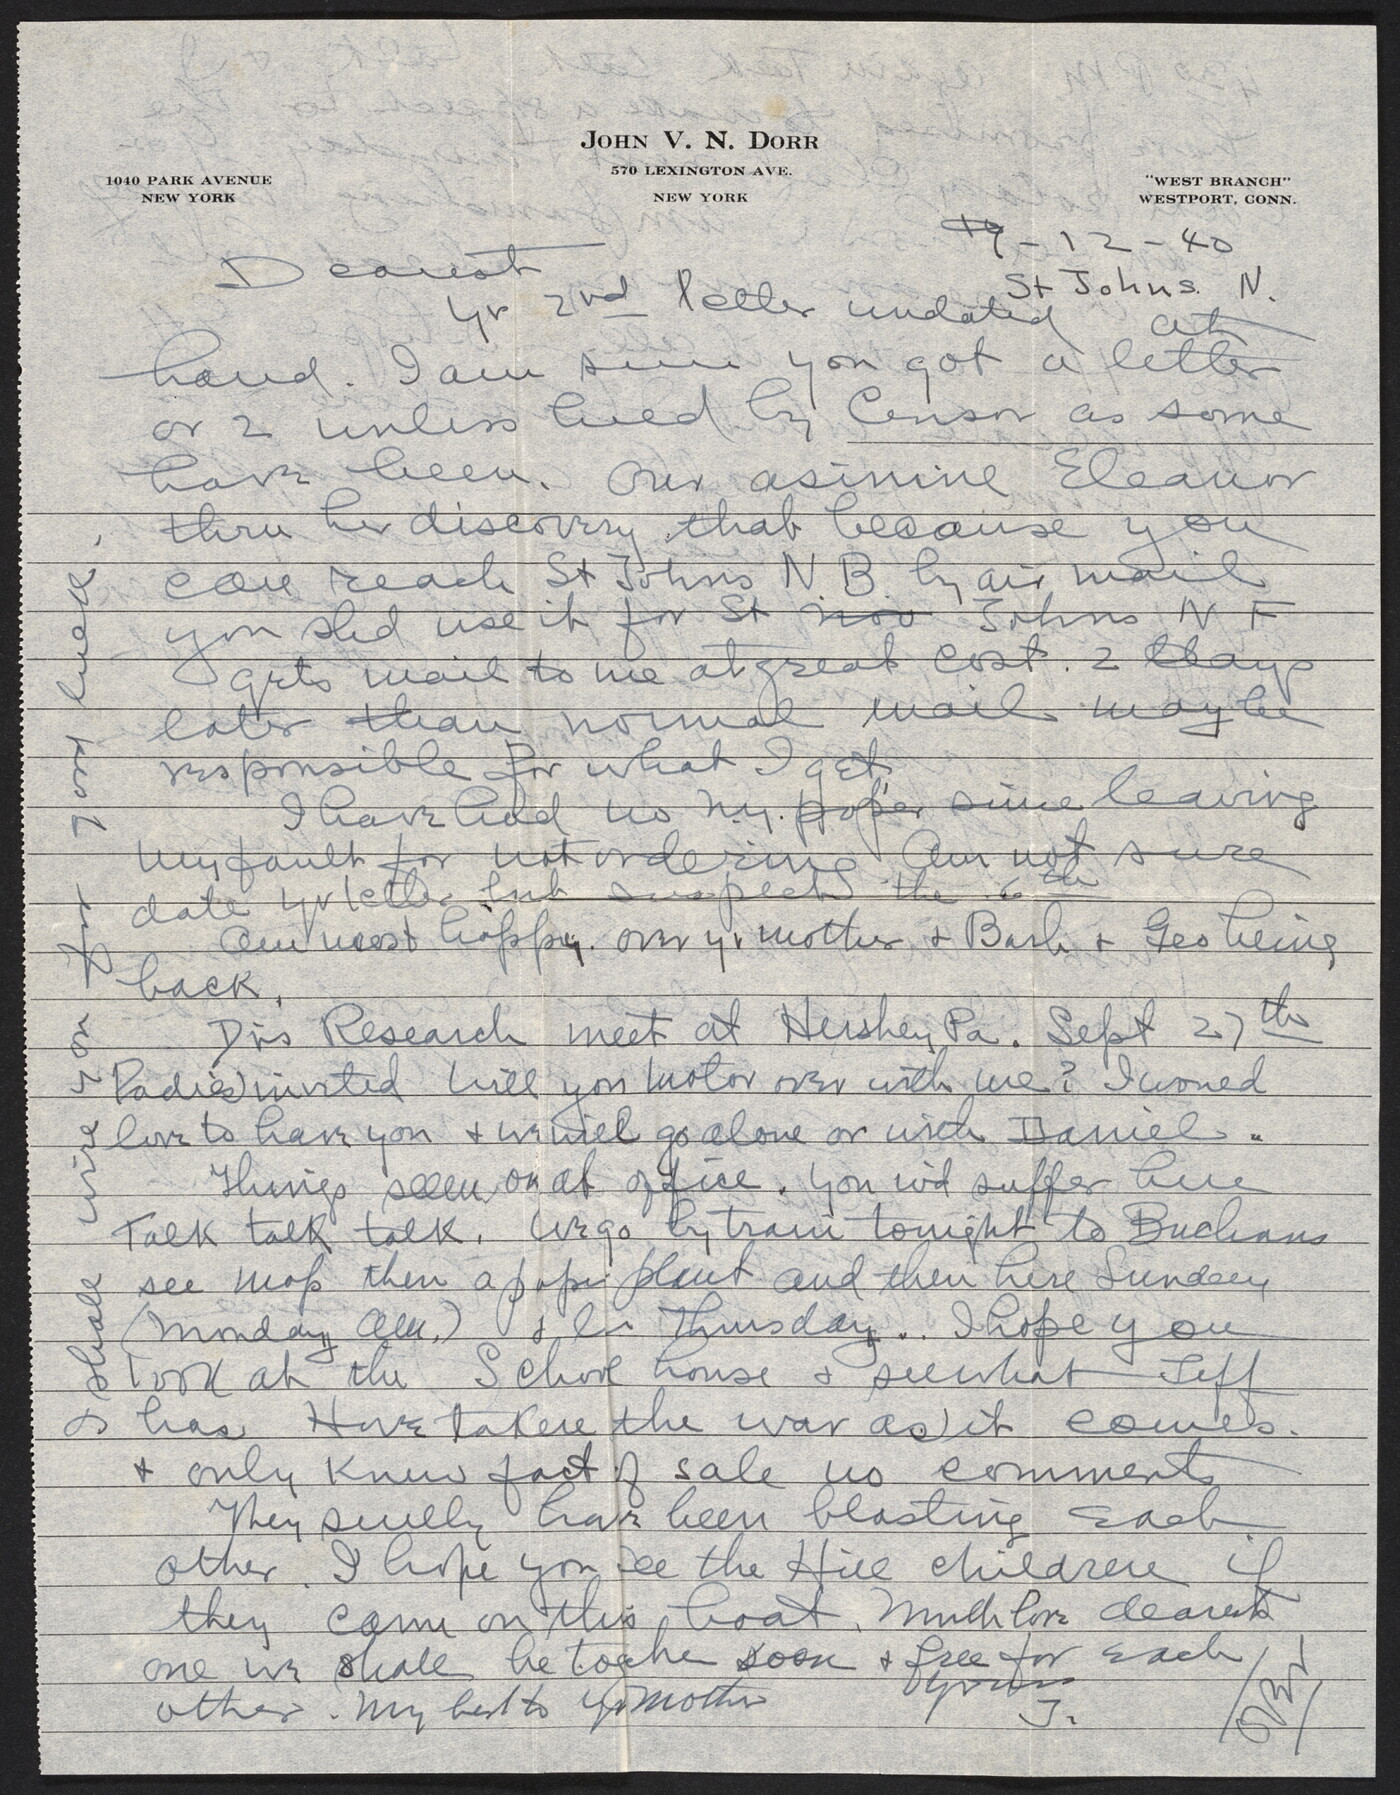 John V. N. Dorr
570 LEXINGTON AVE.
NEW YORK
1040 PARK AVENUE
NEW YORK
"WEST BRANCH"
WESTPORT, CONN.
9-12-40
St Johns. N.
Dearest
Yr 2nd letter undated at
hand. I am sure you got a letter
or 2 unless held by Censor as some
have been. Our asinine Eleanor
thru her discovery that because you
can reach St Johns N.B. by air mail
you shd use it for St Johns N F
gets mail to me at great cost. 2 days
later than normal mail maybe
responsible for what I get.
I have had no N.Y. paper since leaving
my fault for not ordering Am not sure
date yr letter but suspect the 6th
Am most happy over yr mother & Barb & Geo being
back.
Drs Research meet at Hershey Pa. Sept 27th
Ladies invited will you motor over with me? I woued
love to have you & we will go alone or with Daniel.
Things seem ok at office. You wd suffer here
Talk talk talk. We go by train tonight to Buchans
see mop then a paper plant and then here Sunday
(Monday am.) & lv Thursday.. I hope you
look at the School house & see what Jeff
has. Have taken the war as it comes.
& only knew fact of sale no comments
They surely have been blasting each
other. I hope you see the Hill children if
they came on this boat. Much love dearest
one we shall be togthe soon & free for each
other. My best to yr mother
Yours
J.
& shall wire you for your luck.